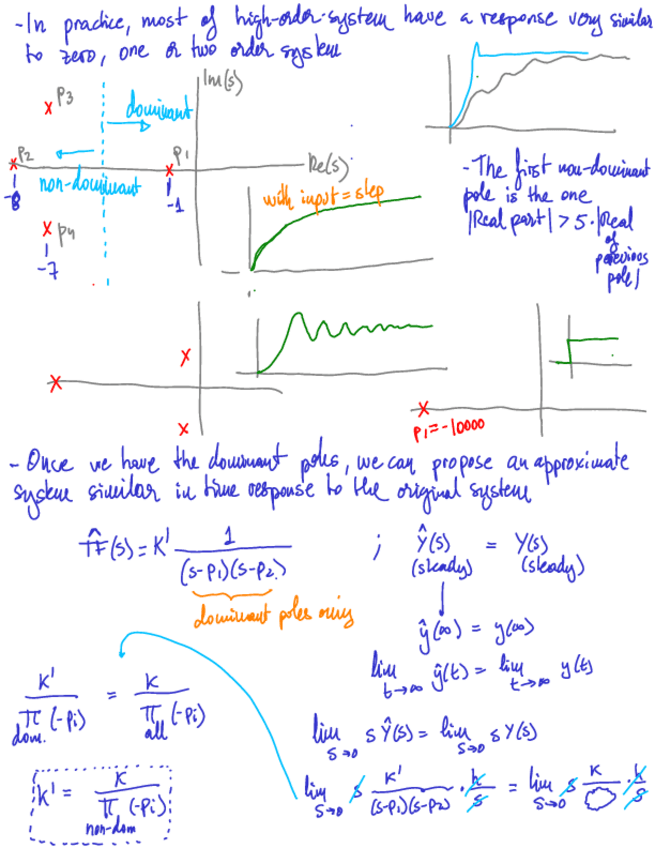 - In practice, most of high-order-system have a response very similar
to zero, one or two order system
Im(s)
p3
dominant
p2
p1
Re(s)
non-dominant
-8
-1
p4
-7
with input = step
- The first non-dominant
pole is the one
|Real part| > 5 · |Real
of
previous
pole|
p1 = -10000
- Once we have the dominant poles, we can propose an approximate
system similar in time response to the original system
T̂F(s) = K' 1/((s-p1)(s-p2)) ; Ŷ(s) = Y(s)
(steady) (steady)
dominant poles only
ŷ(∞) = y(∞)
lim t→∞ ŷ(t) = lim t→∞ y(t)
K'/(π dom. (-pi)) = K/(π all (-pi))
lim s→0 s Ŷ(s) = lim s→0 s Y(s)
lim s→0 s K'/((s-p1)(s-p2)) · h/s = lim s→0 s K/ · h/s
K' = K/(π non-dom (-pi))